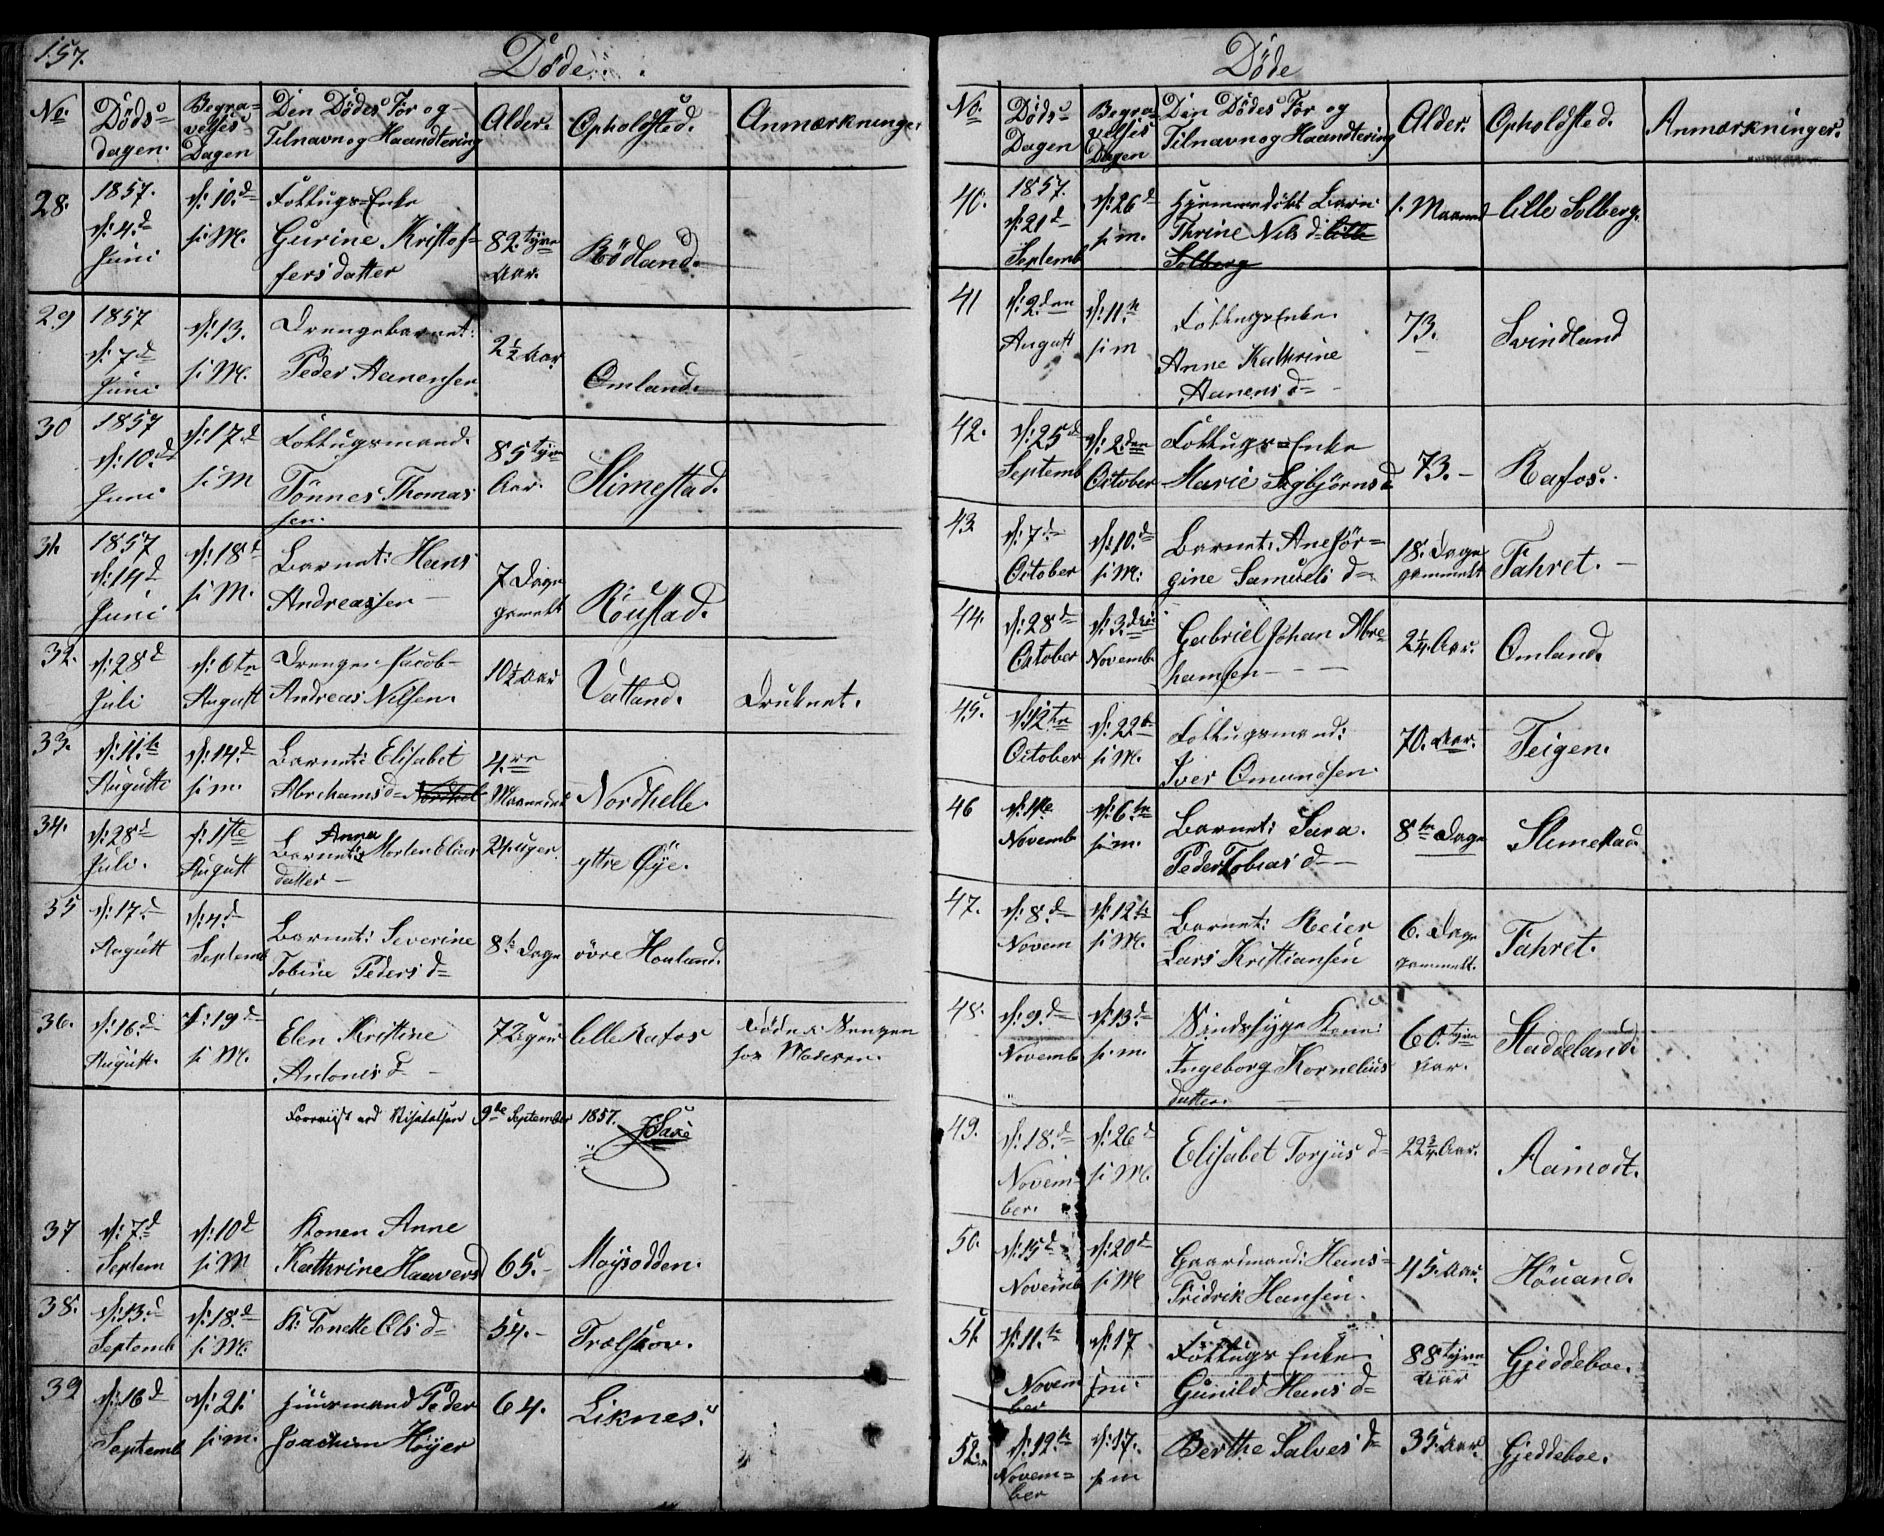 157.
Døde
No. Døds- dagen. Begra- velses Dagen Den Dødes For og Tilnavn og Haandtering Alder. Opholdsted. Anmærkninger
28. 1857. d: 4.d Juni d: 10.d s: M. Fottugs-Enke Gurine Kristof- fersdatter 82 tyve Aar. Rödland.
29 1857 d: 7.d Juni d: 13. s: M. Drengebarnet: Peder Aanensen 2½ Aar Omland.
30 1857 d: 10.d Juni d: 17.d s: M Fottugsmand. Tönnes Thomas sen. 85 tyve Aar. Slimestad.
31. 1857 d: 14.d Juni d: 18.d s: M. Barnet: Hans Andreassen 7 Dage gamelt Röustad.
32. d: 28.d Juli d: 6te August Drengen Jacob Andreas Nilsen. 10½ Aar Vatland. Druknet.
33. d: 11.te Auguste d: 14.d s: m. Barnet: Elisabet Abrehams d= 4.re Maaneder Nordhelle.
34. d: 28.d Juli. d: 1ste August Barnet: Anna Morten Elias datter 2 uger. yttre Øÿe.
35 d: 17.d August d: 4.d Septemb Barnet: Severine Tobine Peders d= 8te Dage övre Houland.
36. d: 16.d August. d: 19.d s: M. Elen Kristine Antonis d 7 Uger lille Rafos
hos Moderen.
Foreviist ved Visitatsen 9de September 1857.
37 d: 7.d Septem d: 10.d s: M Konen Anne Kathrine Haavers d 65.- Moÿsodden.
38. d: 13.d Septemb d: 18.d s: M. K: Tonette Ols d= 54.- Trælskov.
39 d: 16.d Septemb d: 21. s: m. Huusmand Peder Joachim Høÿer 64. Liknes.
Døde
No. Døds- Dagen Begra- velses Dagen Den Dødes For og Tilnavn og Haandtering Alder. Opholdsted. Anmærkninger.
40. 1857. d: 21.d Septemb d: 26.d s: m. Hjemmedöbt Barn: Thrine Nils d= lille Solberg 1. Maaned lille Solberg.
41 d: 2.den August d: 11.te s: m Fottugs Enke Anne Kathrine Aanens d= 73. Svindland
42. d: 25.d Septemb d: 2.den October Fottugs=Enke Marie Sigbjörns d 73.- Rafos.
43 d: 7.d October d: 10.d s: M: Barnet: Ane Jör= gine Samuels d= 18. Dage gammelt Fahret.
44. d: 28.d October d: 3.die Novemb Gabriel Johan Abre= hamsen 2¼ Aar. Omland.
45. d: 12te October d: 22.d s: M. Fottugsmand: Iver Omundsen. 70. Aar. Teigen.
46 d: 1ste Novemb d: 6.te s: m. Barnet: Sara. Peder Tobias d= 8te Dage Slimestad.
47. d: 8.d Novem d: 12te s: M. Barnet: Reier Lars Kristiansen 6. Dage gammelt. Fahret.
48. d: 9.d Novemb d: 13.d s: m. Sindssyge Kone: Ingeborg Kornelius datter. 60. tyve Aar. Staddeland.
49. d: 18.d Novem= ber. d: 26.d s: M. Elisabet Torjus d= 22¾ Aar. Aamodt.
50. d: 15.d Novemb d: 20.d s: M Gaardmand: Hans= Fridrik Hansen. 45. Aar. Höuand.
51. d: 11.te Novem ber d: 17 s: m: Fottugs Enke Gunild Hans d= 88 tyve Aar Gjeddeboe.
52. d: 12.te Novem= ber d: 17. s: m Berthe Salves d= 35. Aar. Gjeddeboe.